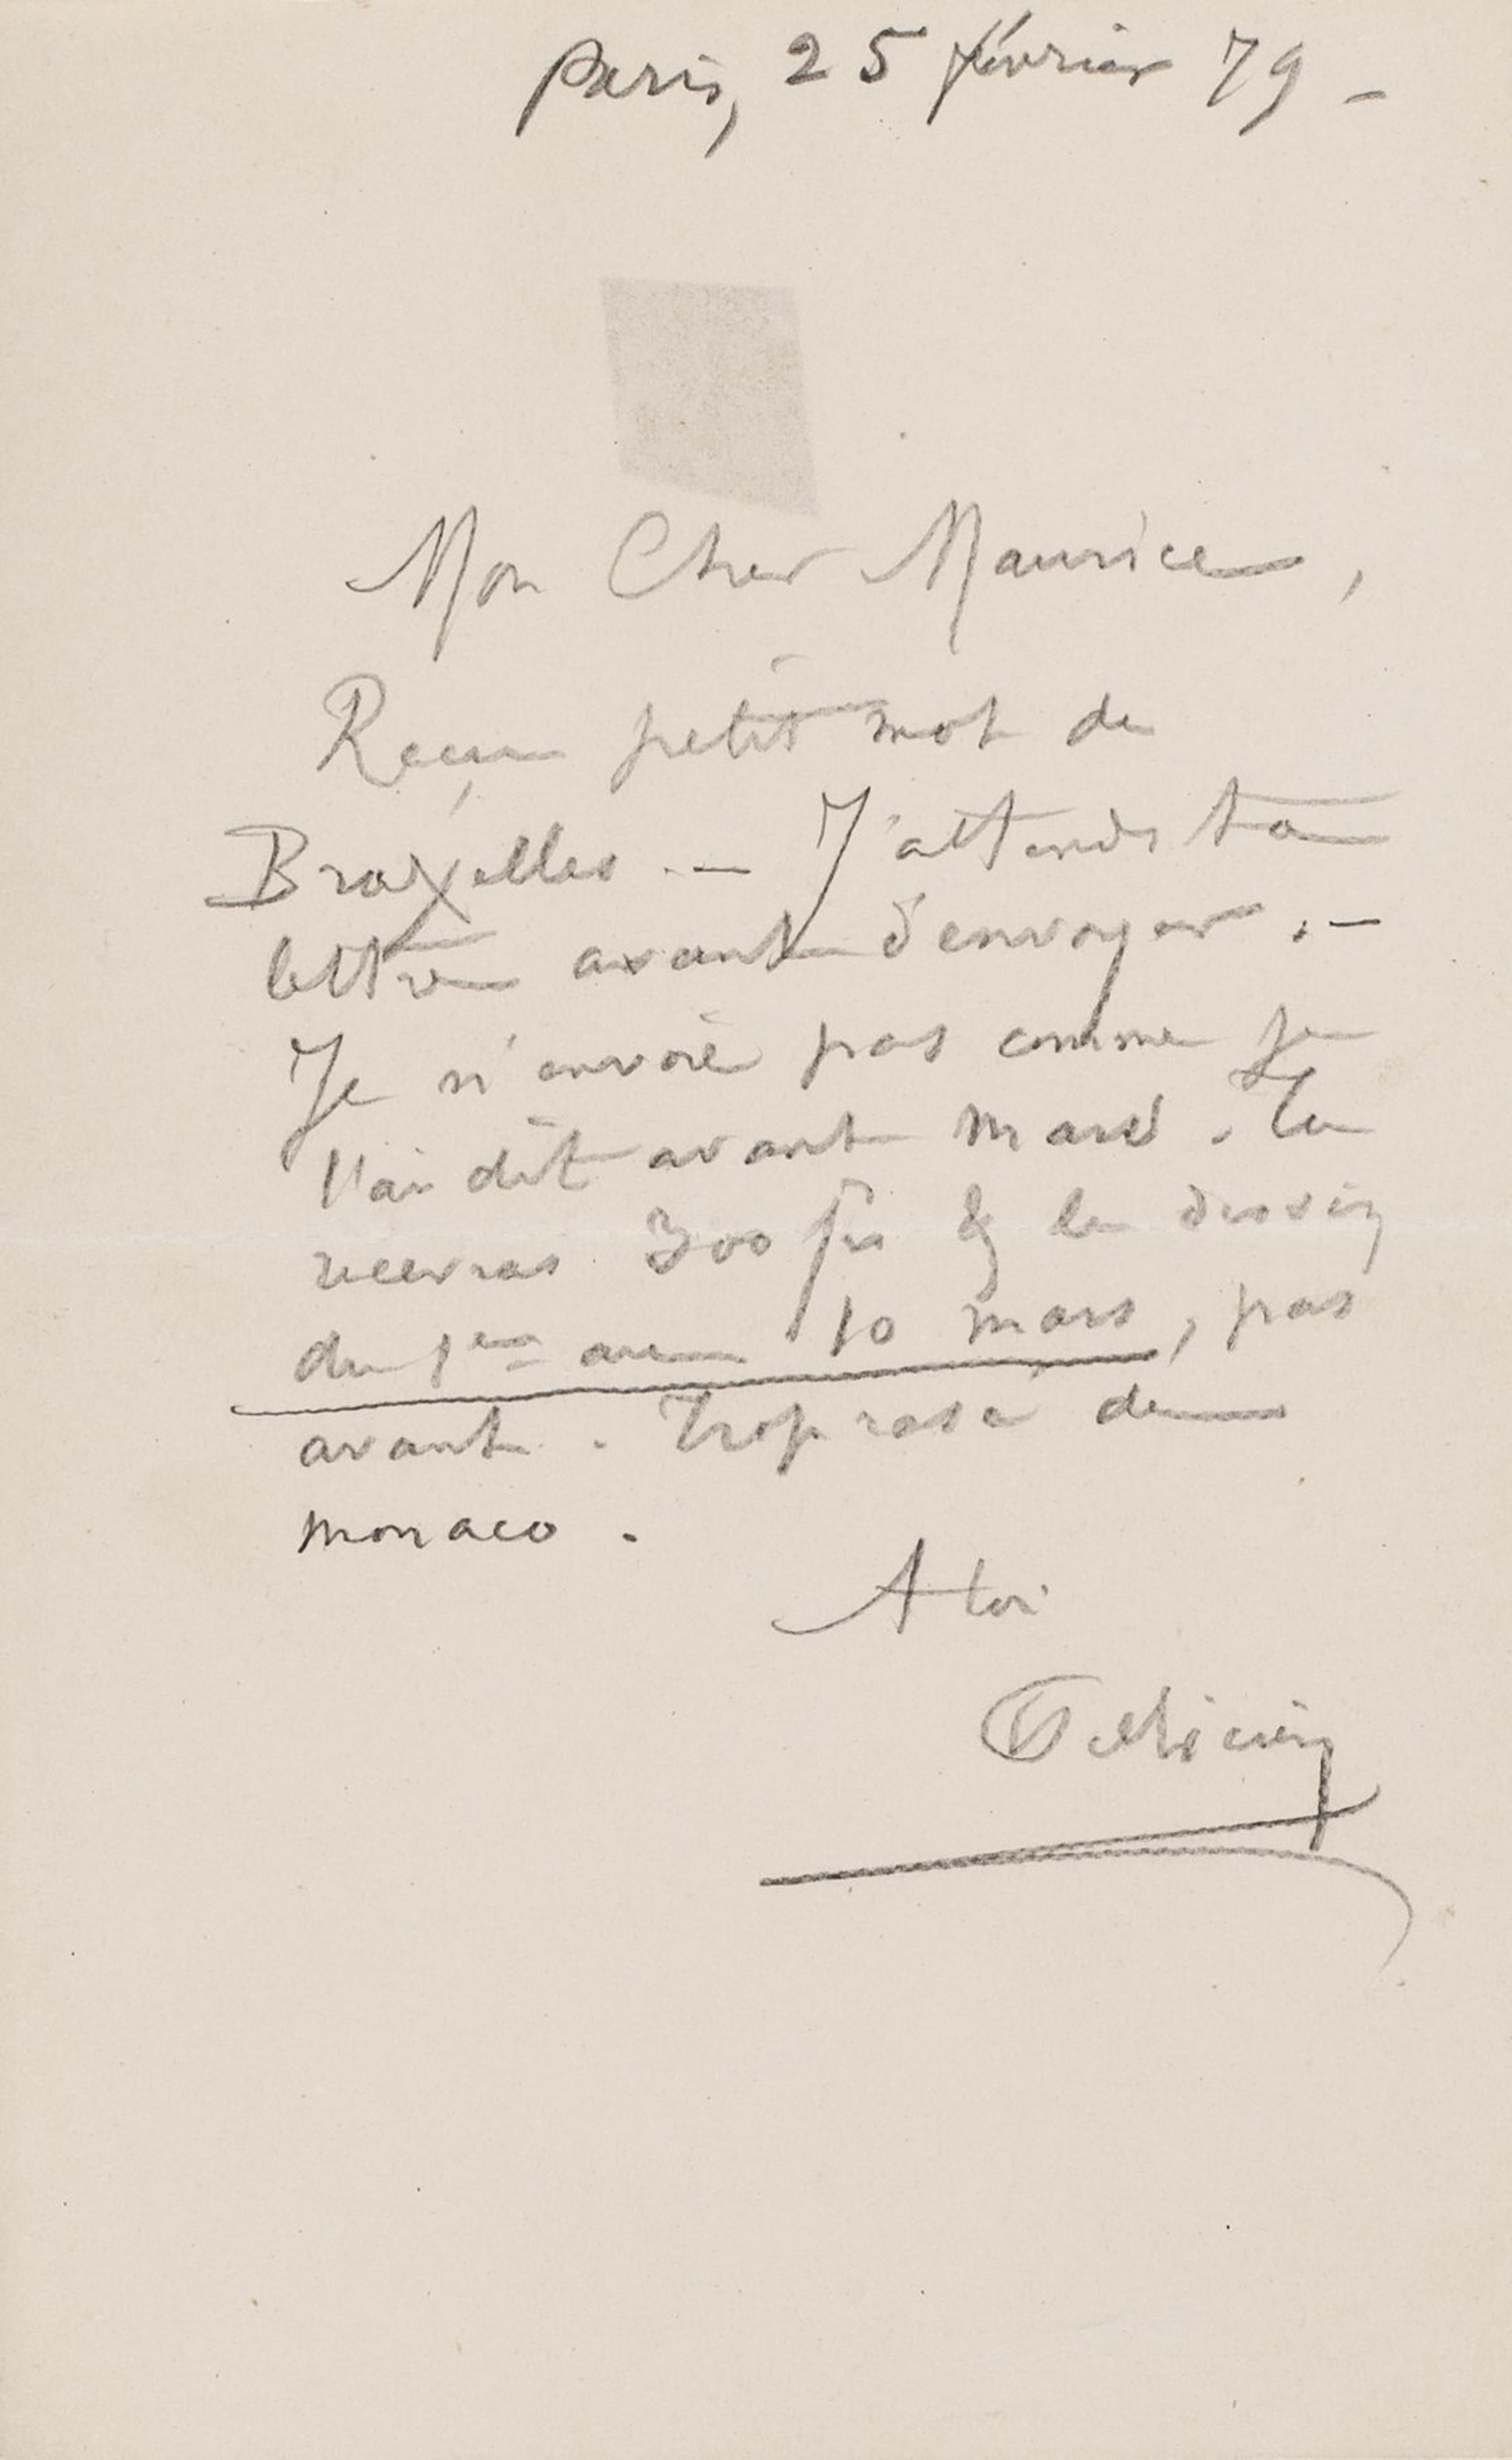 Paris, 25 février 79 –
Mon Cher Maurice,
Reçu petit mot de
Bruxelles. — J'attends ta
lettre avant d'envoyer. —
Je n'envoie pas comme je
l'ai dit avant mars. Tu
recevras 300 frs & le dessin
du 1er au 10 mars, pas
avant. Trop rasé de
monaco.
A toi
Félicien